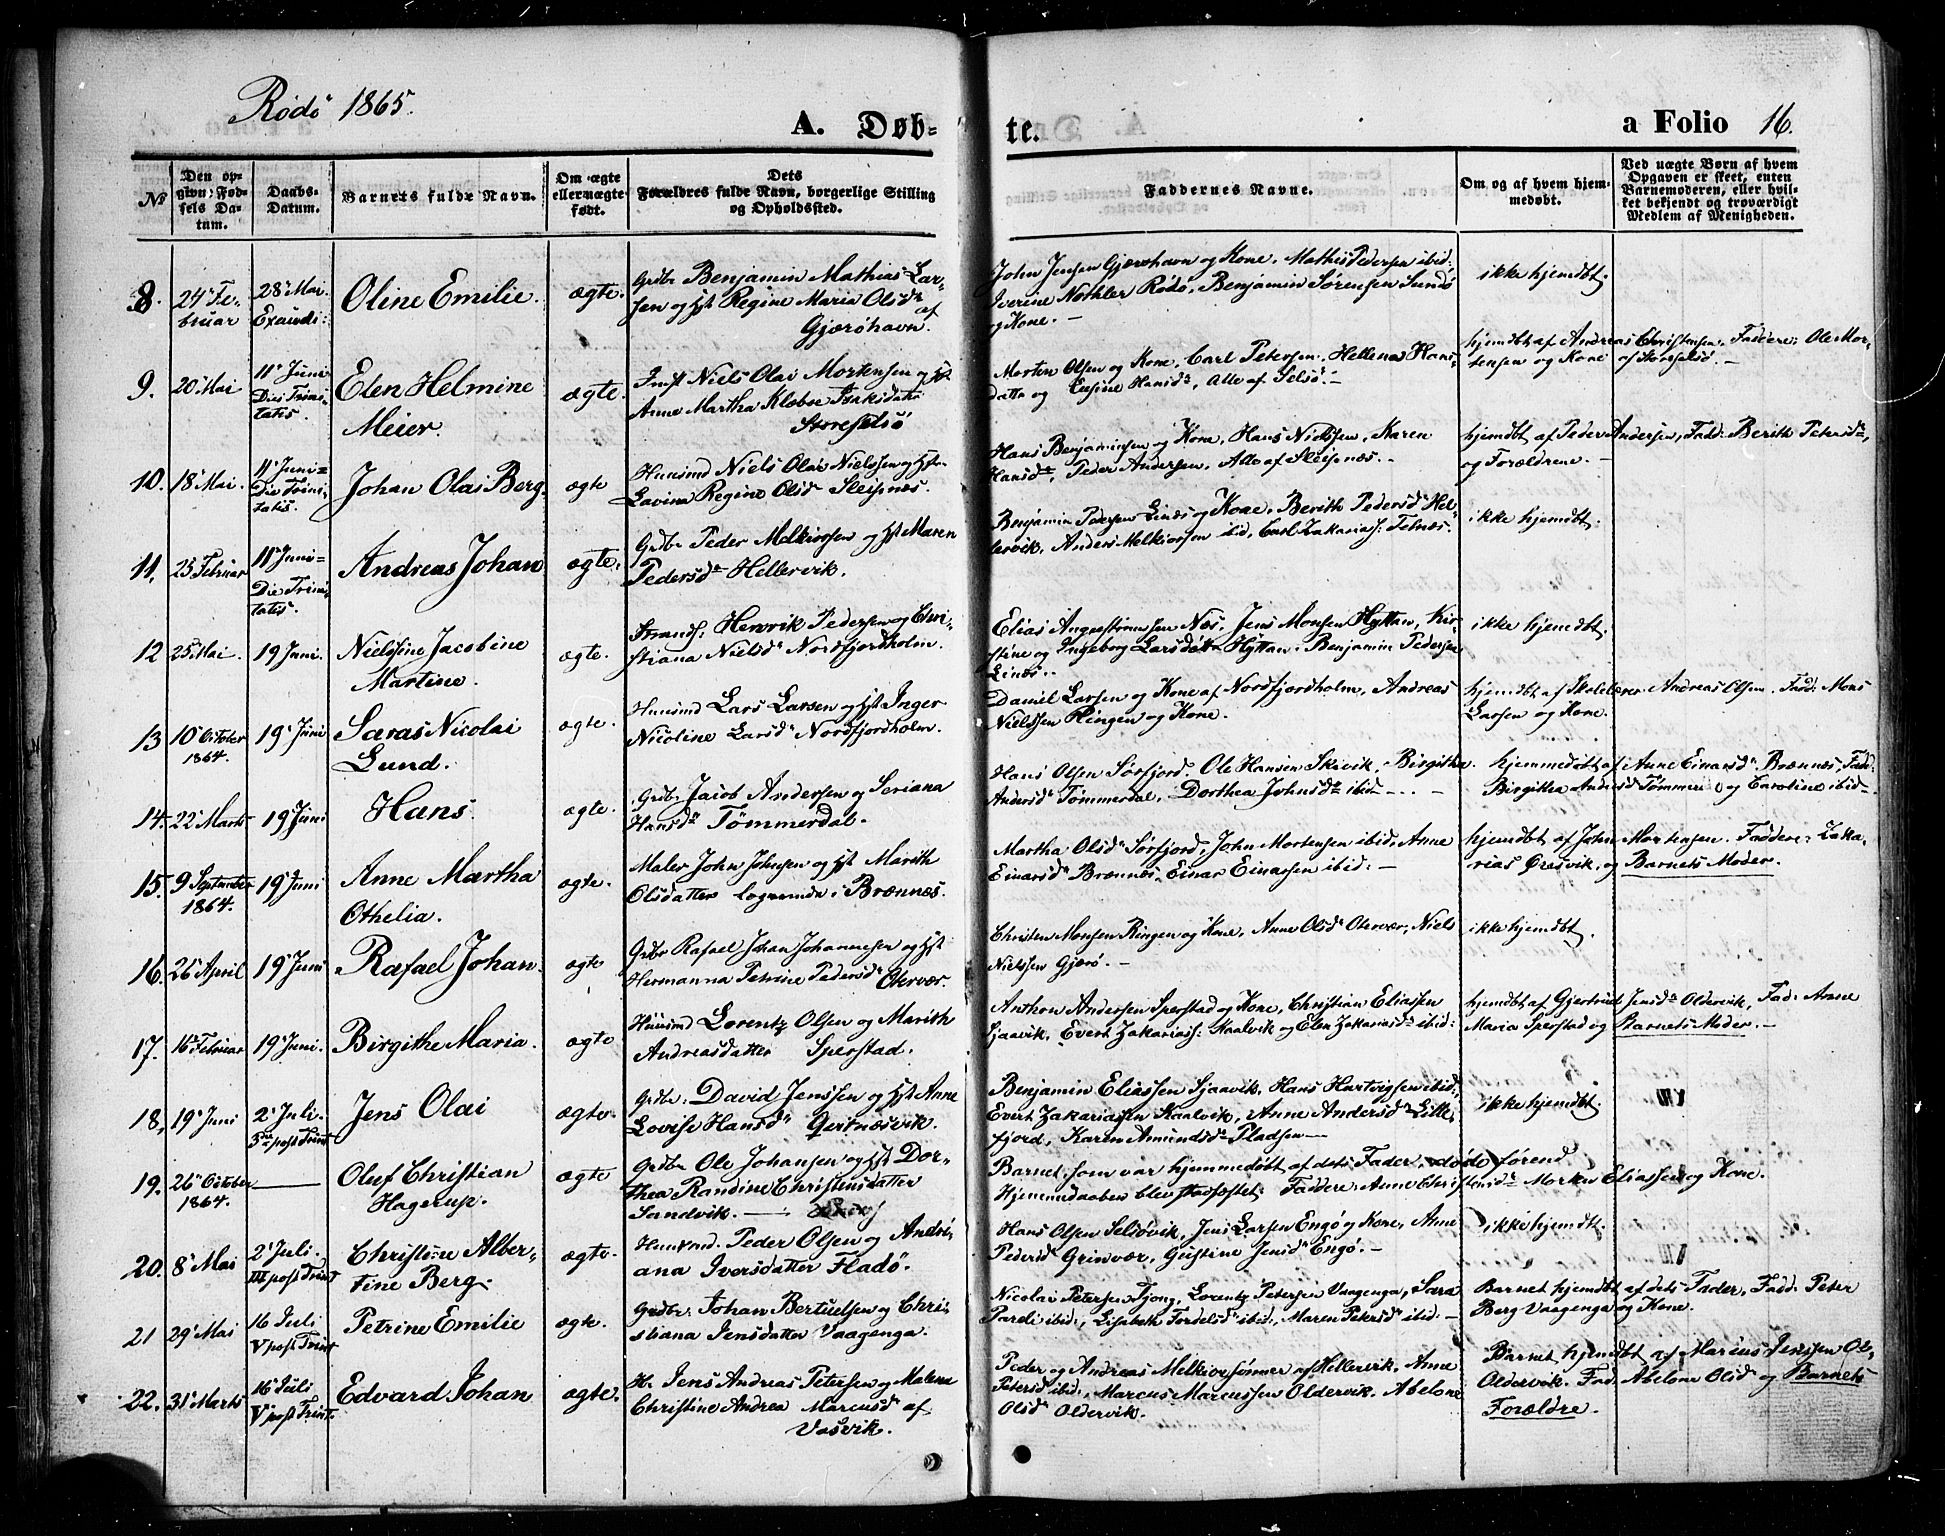 Rödö 1865.
A. Døb-
te.
a Folio 16.
No
Den op-
givn: Fød-
sels Da-
tum.
Daabs-
Datum.
Barnets fulde Navn.
Om ægte
eller uægte
født.
Dets
Forældres fulde Navn, borgerlige Stilling
og Opholdssted.
Faddernes Navne.
Om og af hvem hjem-
medøbt.
Ved uægte Børn af hvem
Opgaven er skeet, enten
Barnemoderen, eller hvil-
ket bekjendt og troværdigt
Medlem af Menigheden.
8. 24 Fe-
bruar
28 Mai
Exaudi:
Oline Emilie.
ægte.
Grdbr Benjamin Mathias Lar-
sen og Hst Regine Maria Olsdr af
Gjæröhavn.
John Jensen Gjæröhavn og Kone, Mathis Pedersen ibid:
Iverine Nøthler Rödö, Benjamin Sörensen Sundö
og Kone. –
ikke hjemdbt.
9. 20 Mai
11 Juni
Dies Trini-
tatis.
Elen Helmine
Meier.
ægte.
Niels Olai Mortensen og Hst
Anne Martha Klæboe Isaksdatr
Storeselsö
Morten Olsen og Kone, Carl Petersen, Hellena Hans-
datte og Eusine Hansdr, Alle af Selsö. –
hjemdbt af Andreas Christensen. Faddere: Ole Mor-
tensen og Kone af Storselsö. –
10. 18 Mai.
11 Juni =
Die Trini-
tatis.
Johan Olai Berg.
ægte
Huusmd Niels Olai Nielssen og Hst
Lavina Regine Olsd Sleipnes.
Hans Benjaminsen og Kone, Hans Nielssen, Karen
Hansdr, Peder Andersen, Alle af Sleipnæs. –
hjemdbt af Peder Andersen, Fadd: Berith Petersdr,
og Forældrene. –
11. 25 Februar
11 Juni =
Die Trini-
tatis.
Andreas Johan
ægte.
Grdbr Peder Melkiorsen og Hst Maren
Pedersdr Hellervik.
Benjamin Pedersen Linæs og Kone, Berith Pedersdr Hel-
lervik, Anders Melkiorsen ibid, Carl Zakarias: Telnæs.
ikke hjemdbt.
12 25 Mai.
19 Juni.
Nielsine Jacobine
Martine.
ægte.
Strands: Henrik Pedersen og Chri-
stiana Nielsdr Nordfjordholm.
Elias Angerstrømsen Næs, Jens Monsen Hyttan, Kir-
stine og Ingeborg Larsdatr Hyttan. Benjamin Pedersen
Linæs. –
ikke hjemdbt.
13 10 October
1864.
19 Juni
Saras Nicolai
Lund.
ægte.
Huusmd Lars Larsen og Hst Inger
Nicoline Larsdr Nordfjordholm.
Daniel Larsen og Kone af Nordfjordholm, Andreas
Nielssen Ringen og Kone.
hjemdbt af Skolelærer Andreas Olsen. Fadd: Mons
Larsen og Kone.
14. 22 Marts
19 Juni
Hans.
ægte.
Grdbr Jacob Andersen og Seriana
Hansdr Tömmerdal.
Hans Olsen Sörfjord. Ole Hansen Skivik, Birgitha
Andersdr Tömmerdal, Dorthea Johnsdr ibid –
hjemmedöbt af Anne Einarsdr Brænnæs. Fadd:
Birgitha Andersd Tömmer og Caroline ibid.
15. 9 September
1864.
19 Juni
Anne Martha
Othelia.
ægte.
Maler John Johnsen og Hst Marith
Olsdatter Logerende i Brænnæs.
Martha Olsdr Sörfjord, John Mortensen ibid, Anne
Einarsdr Brænnæs, Einar Einarsen ibid: –
hjemdbt af John Mortensen. Faddere: Zaka-
rias Øresvik, og Barnets Moder.
16. 26 April
19 Juni
Rafael Johan.
ægte
Grdbr Rafael Johan Johannesen og Hst
Hermanna Petrine Pedersdr Oterver.
Christen Monsen Ringen og Kone, Anne Olsdr Oterver, Niels
Nielssen Gjærö. –
ikke hjemdbt.
17. 16 Februar
19 Juni.
Birgithe Maria.
ægte
Huusmd Lorentz Olsen og Marith
Andreasdatter Sperstad.
Anthon Andersen Sperstad og Kone, Christian Eliassen
Sjaavik, Evert Zakariass: Kaalvik og Elen Zakariasdr ibid:
hjemdbt af Gjertrud Jensdr Oldervik, Fad: Anne
Maria Sperstad og Barnets Moder. –
18. 19 Juni
2 Juli.
3die post Trint
Jens Olai
ægte.
Grdbr. David Jenssen og Hst Anne
Lovise Hansdr Geitnæsvik.
Benjamin Eliassen Sjaavik, Hans Hartvigsen ibid:
Evert Zakariassen Kaalvik, Anne Andersdr Lille-
fjord, Karen Amundsdr Pladsen –
ikke hjemdbt.
19. 26 October
1864.
Oluf Christian
Hagerup.
ægte
Grdbr Ole Johansen og Hst Dor-
thea Randine Christensdatter
Sandvik. –
Barnet, som var hjemmedöbt af dets Fader, döde förend
Hjemmedaaben blev stadfæstet: Faddere: Anne Christensdr Morten Eliassen og Kone.
20. 8 Mai
2 Juli.
III post Trint
Christine Alber-
tine Berg.
ægte.
Huusmd. Peder Olsen og Andri-
ana Iversdatter Fladö.
Hans Olsen Selsövik, Jens Larsen Engö og Kone, Anne
Pedersd Grindvær, Gustine Jensdr Engö. –
ikke hjemdbt.
21 29 Mai
16 Juli
V post Trint
Petrine Emilie
ægte.
Grdbr. Johan Bertuelsen og Chri-
stiana Jensdatter Vaagenga.
Nicolai Petersen Tjong, Lorentz Petersen Vaagenga, Sara
Pareli ibid:, Lisabeth Fordelsdr ibid:, Maren Petersdr ibid: –
Barnet hjemdbt af dets Fader, Fadd: Peter
Berg Vaagenga og Kone.
22. 31 Marts
16 Juli
V post Trint.
Edvard Johan
ægte.
H. Jens Andreas Petersen og Malena
Christine Andrea Marcusd af
Vasvik.
Peder og Andreas Melkiorsönner af Hellervik. Anne
Petersd ibid:, Marcus Marcussen Oldervik, Abelone
Olsdr Oldervik.
Barnet hjemdbt af Marcus Jenssen
Oldervik. Fad: Abelone Olsd og Barnets
Forældre.